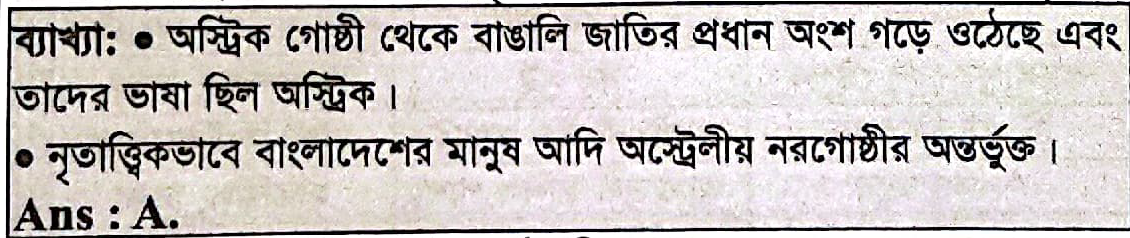 ব্যাখ্যা: ● অস্ট্রিক গোষ্ঠী থেকে বাঙালি জাতির প্রধান অংশ গড়ে ওঠেছে এবং
তাদের ভাষা ছিল অস্ট্রিক।
● নৃতাত্ত্বিকভাবে বাংলাদেশের মানুষ আদি অস্ট্রেলীয় নরগোষ্ঠীর অন্তর্ভুক্ত।
Ans : A.